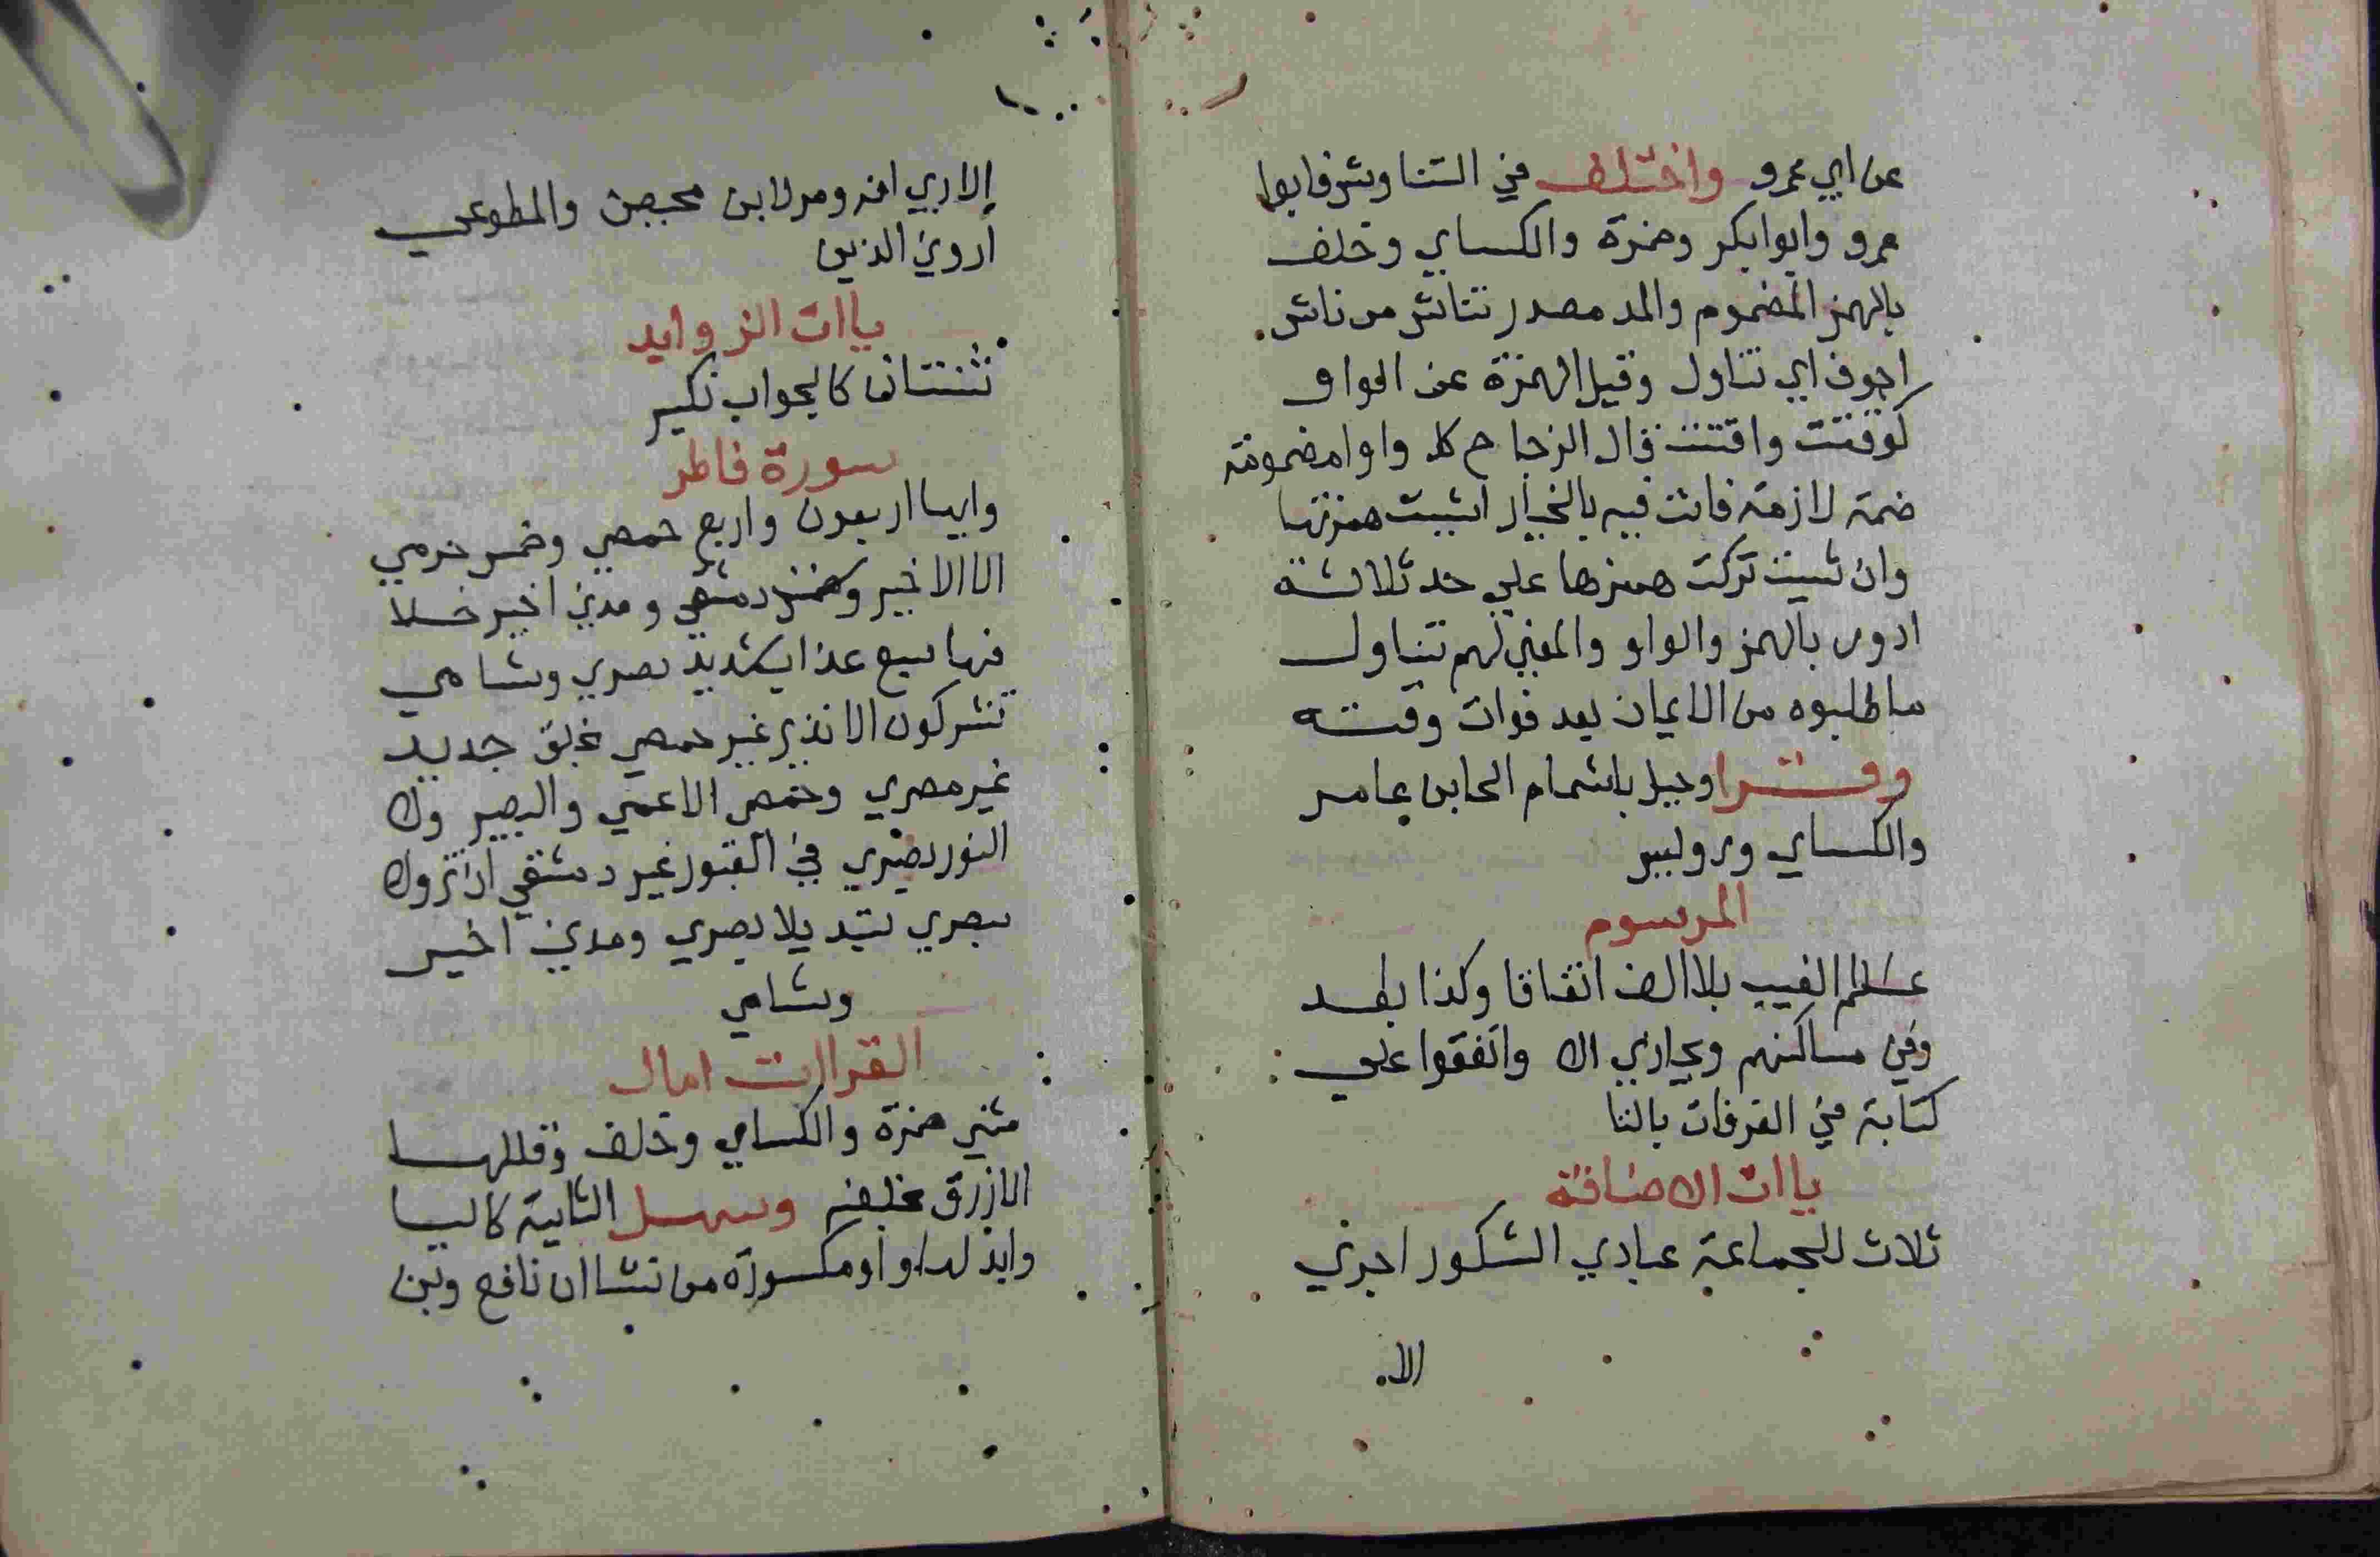 عن ابي عمرو واختلف في التناوش فابوا
عمرو وابوابكر وحمزة والكساي وخلف
بالهمز المضموم والمد مصدر تناءش من ناش
اجوف اي تناول وقيل الهمزة عن الواو
كوقتت واقتت قال الزجاح كل واوا مضمومة
ضمة لازمة فانت فيه بالخيار اثبت همزتها
وان شيت تركت همزها علي حد ثلاثة
ادور بالهمز والواو والمعني لهم تناول
ما طلبوه من الايمان بعد فوات وقته
وقرا وحيل باشمام الحا بن عامر
والكساي ورويس
المرسوم
علم الغيب بلا الف اتفاقا وكذا بعد
وفي مساكنهم ويجازي الا واتفقوا علي
كتابة في الغرفات بالتا
ياات الاضافة
ثلاث للجماعة عبادي الشكور اجري
الا
الا ربي انه ومر لابن محيصن والمطوعي
اروني الذين
ياات الزوايد
ثنتان كالجواب نكير
سورة فاطر
وايها اربعون واربع حمصي وخمس حرمي
الا الاخير وست دمشقي ومدني اخير خلا
فها سبع عذاب شديد بصري وشامي
تشركون الا نذير غير حمصي بخلق جديد
غير مصري وحمصي الاعمي والبصير ولا
النور بصري في القبور غير دمشقي ان تزولا
بصري تبديلا بصري ومدني اخير
وشامي
القراات امال
مثني حمزة والكساي وخلف وقللها
الازرق بخلفه وسهل الثانية كاليا
وابدلها واوا مكسورة من تشا ان نافع وبن